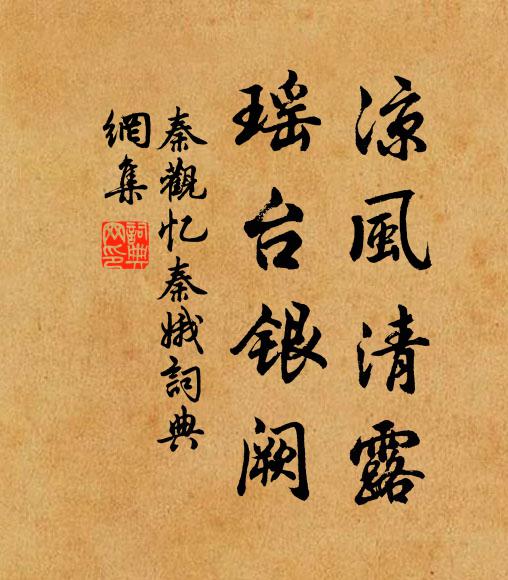 凉風清露
瑶台银阙
秦觀忆秦娥詞典
網集
詞典
网印